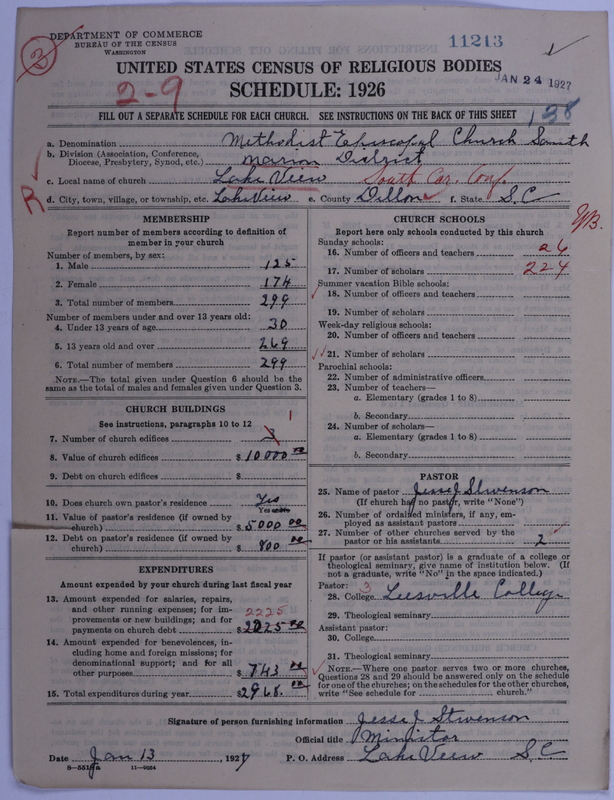 DEPARTMENT OF COMMERCE
BUREAU OF THE CENSUS
WASHINGTON
2
11213
UNITED STATES CENSUS OF RELIGIOUS BODIES
JAN 24 1927
2-9
SCHEDULE: 1926
FILL OUT A SEPARATE SCHEDULE FOR EACH CHURCH. SEE INSTRUCTIONS ON THE BACK OF THIS SHEET
138
a. Denomination Methodist Episcopal Church South
b. Division (Association, Conference, Diocese, Presbytery, Synod, etc.) Marion District
c. Local name of church Lake View South Car. Conf.
d. City, town, village, or township, etc. Lake View e. County Dillon f. State S.C
R
MEMBERSHIP
Report number of members according to definition of
member in your church
Number of members, by sex:
1. Male 125
2. Female 174
3. Total number of members 299
Number of members under and over 13 years old:
4. Under 13 years of age 30
5. 13 years old and over 269
6. Total number of members 299
NOTE.—The total given under Question 6 should be the
same as the total of males and females given under Question 3.
CHURCH BUILDINGS
See instructions, paragraphs 10 to 12
7. Number of church edifices 1
8. Value of church edifices $ 10000 00
9. Debt on church edifices $
10. Does church own pastor's residence Yes
Yes or No
11. Value of pastor's residence (if owned by
church) $ 5000 00
12. Debt on pastor's residence (if owned by
church) $ 800 00
EXPENDITURES
Amount expended by your church during last fiscal year
13. Amount expended for salaries, repairs,
and other running expenses; for im-
provements or new buildings; and for
payments on church debt $ 2225 00
2225
14. Amount expended for benevolences, in-
cluding home and foreign missions; for
denominational support; and for all
other purposes $ 743 00
15. Total expenditures during year $ 2968. 00
CHURCH SCHOOLS
Report here only schools conducted by this church
Sunday schools:
16. Number of officers and teachers 26
17. Number of scholars 224
Summer vacation Bible schools:
18. Number of officers and teachers
19. Number of scholars
Week-day religious schools:
20. Number of officers and teachers
21. Number of scholars
Parochial schools:
22. Number of administrative officers
23. Number of teachers—
a. Elementary (grades 1 to 8)
b. Secondary
24. Number of scholars—
a. Elementary (grades 1 to 8)
b. Secondary
PASTOR
25. Name of pastor Jesse J Stevenson
(If church has no pastor, write "None")
26. Number of ordained ministers, if any, em-
ployed as assistant pastors
27. Number of other churches served by the
pastor or his assistants 2
If pastor (or assistant pastor) is a graduate of a college or
theological seminary, give name of institution below. (If
not a graduate, write "No" in the space indicated.)
Pastor: 3
28. College Leesville College
29. Theological seminary
Assistant pastor:
30. College
31. Theological seminary
NOTE.—Where one pastor serves two or more churches,
Questions 28 and 29 should be answered only on the schedule
for one of the churches; on the schedules for the other churches,
write "See schedule for church."
Signature of person furnishing information Jesse J Stevenson
Official title Minister
Date Jan 13, 1927 P. O. Address Lake View S.C
11—9204